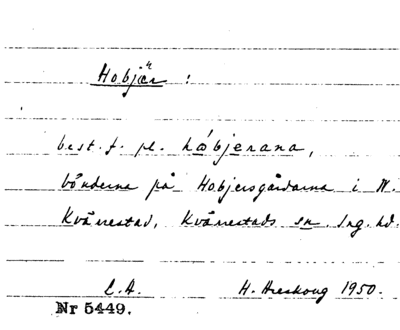 Hobjär :
best. f. pl. håbjerana,
bönderna på Hobjersgårdarna i N.
Kvärrestad, Kvärrestads sn. Ing. hd.
C.A. H. Areskoug 1950.
Nr 5449.